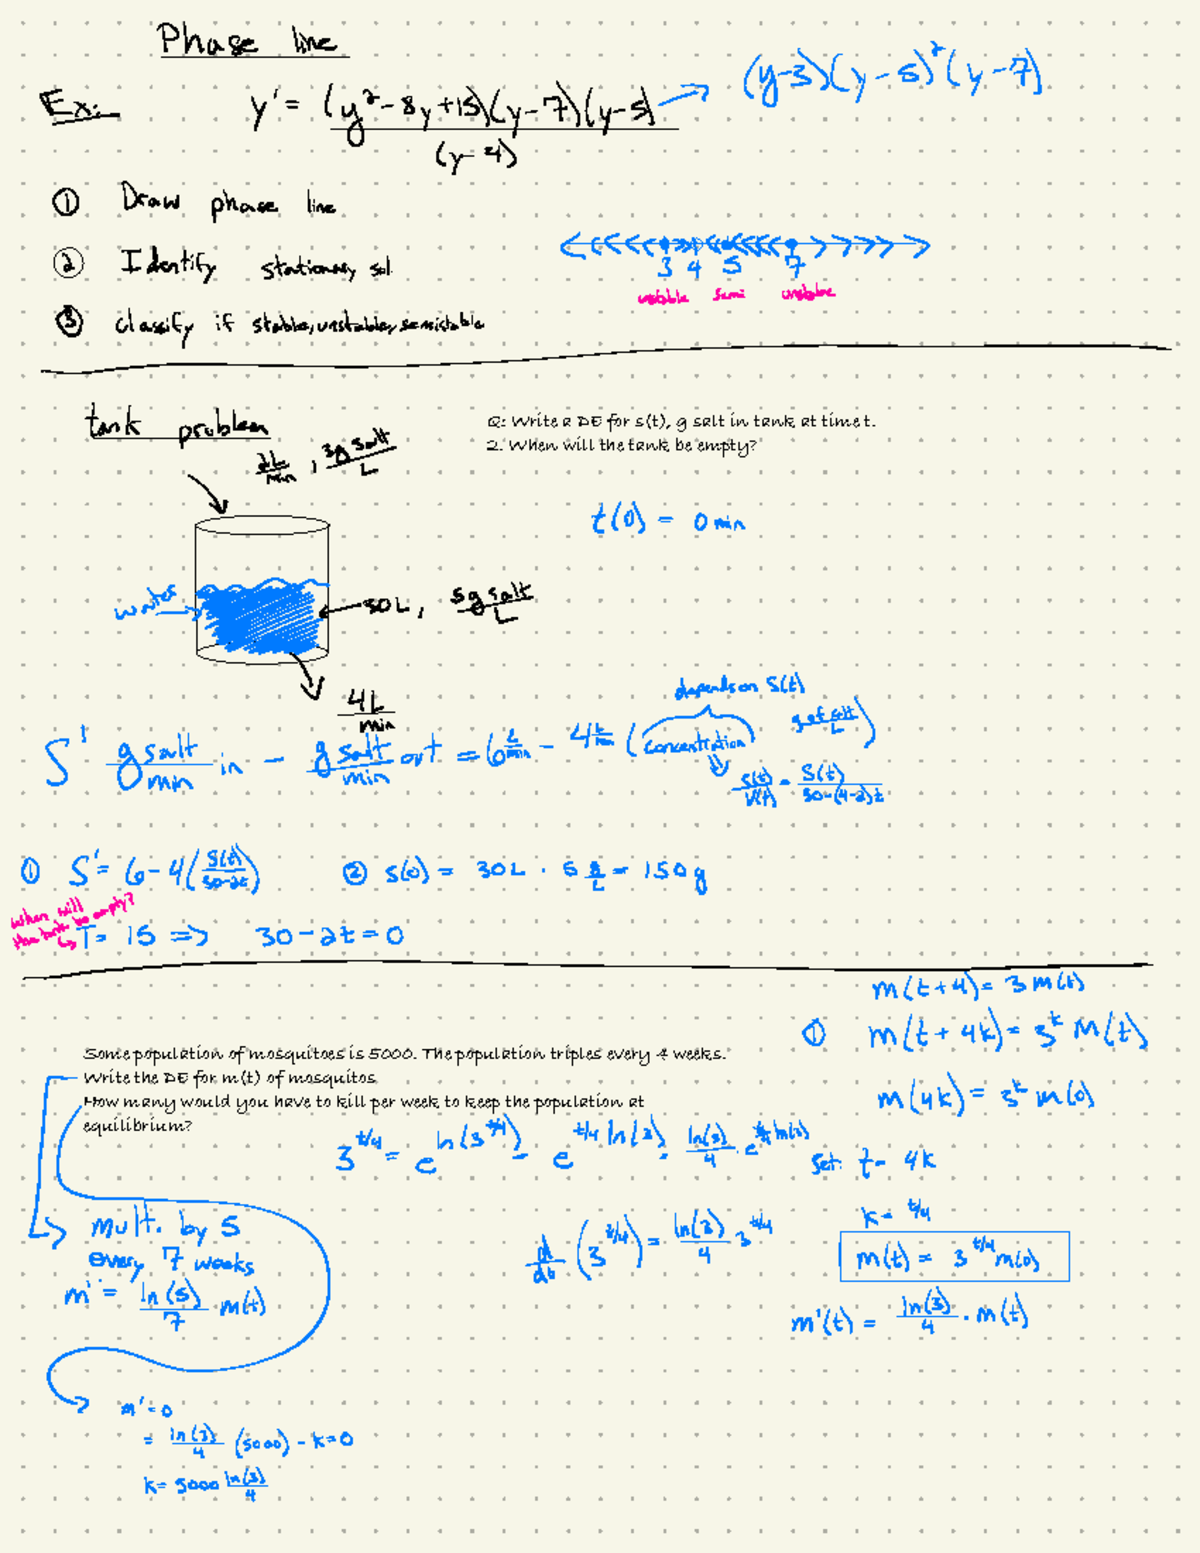 Phase line
Ex: y' = (y² - 8y + 15)(y - 7)(y - 5) / (y - 4) → (y-3)(y-5)²(y-7)
① Draw phase line
② Identify stationary sol.
③ classify if stable, unstable, semistable
3 4 5 7
unstable semi unstable
tank problem
2L/min , 3g salt/L
Q: Write a DE for s(t), g salt in tank at time t.
2. When will the tank be empty?
t(0) = 0 min
water
30L, 5g salt/L
4L/min
depends on S(t)
S' g salt/min in - g salt/min out = 6 L/min - 4 L/min (concentration g of salt/L)
S(t)/V(t) = S(t)/30-(4-2)t
① S' = 6 - 4(S(t)/30-2t) ② s(0) = 30L · 5 g/L = 150g
When will the tank be empty?
T = 15 => 30 - 2t = 0
m(t+4) = 3m(t)
① m(t+4k) = 3^k m(t)
m(4k) = 3^k m(0)
Some population of mosquitoes is 5000. The population triples every 4 weeks.
Write the DE for m(t) of mosquitos
How many would you have to kill per week to keep the population at
equilibrium?
3^t/4 = e^ln(3^t/4) = e^t/4 ln(3) = ln(3)/4 · e^t/4 ln(3)
Set: t = 4k
k = t/4
mult. by 5
every 7 weeks
m' = ln(5)/7 m(t)
d/dt (3^t/4) = ln(3)/4 3^t/4
m(t) = 3^t/4 m(0)
m'(t) = ln(3)/4 · m(t)
m' = 0
= ln(3)/4 (5000) - k = 0
k = 5000 ln(3)/4